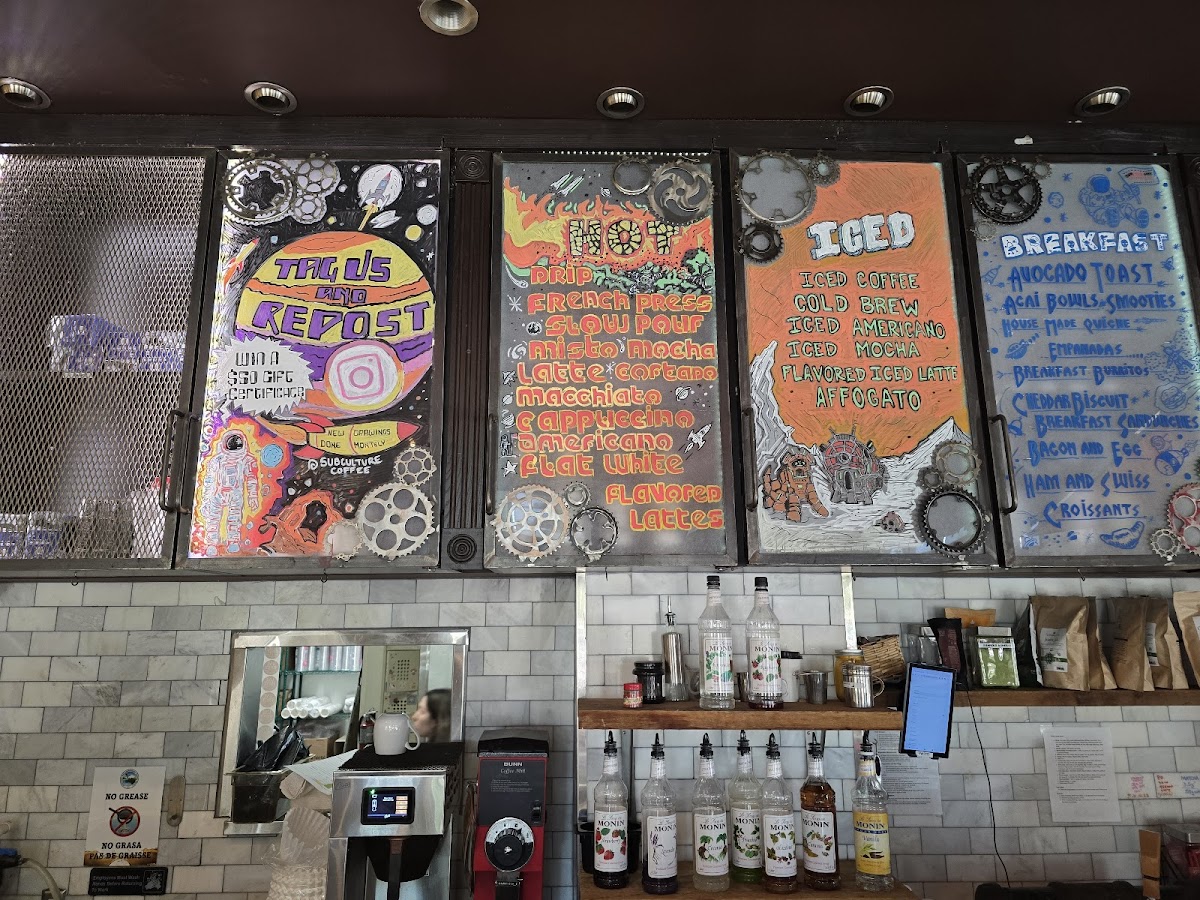 TAG US
AND
REPOST
WIN A
$50 GIFT
CERTIFICATE
NEW DRAWINGS
DONE MONTHLY
@SUBCULTURE
COFFEE
HOT
DRIP
FRENCH PRESS
SLOW POUR
MISTO MOCHA
LATTE CORTADO
MACCHIATO
CAPPUCCINO
AMERICANO
FLAT WHITE
FLAVORED
LATTES
ICED
ICED COFFEE
COLD BREW
ICED AMERICANO
ICED MOCHA
FLAVORED ICED LATTE
AFFOGATO
BREAKFAST
AVOCADO TOAST
ACAI BOWLS & SMOOTIES
HOUSE MADE QUÈCHE
EMPANADAS.....
BREAKFAST BURRITOS
CHEDDAR BISCUIT
BREAKFAST SANDWICHES
BACON AND EGG
HAM AND SWISS
CROISSANTS
MONIN
MONIN
NO GREASE
NO GRASA
PAS DE GRAISSE
Employees Must Wash
Hands Before Returning
To Work
BUNN
MONIN
MONIN
MONIN
MONIN
MONIN
MONIN
MONIN
Vanilla